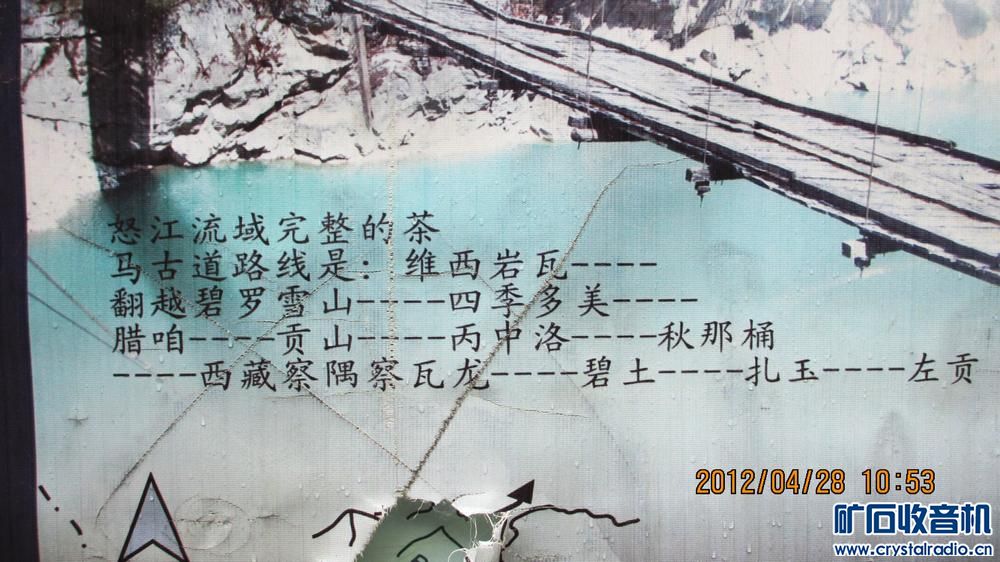 怒江流域完整的茶
马古道路线是：维西岩瓦----
翻越碧罗雪山----四季多美----
腊咱----贡山----丙中洛----秋那桶
----西藏察隅察瓦龙----碧土----扎玉----左贡
2012/04/28 10:53
矿石收音机
www.crystalradio.cn